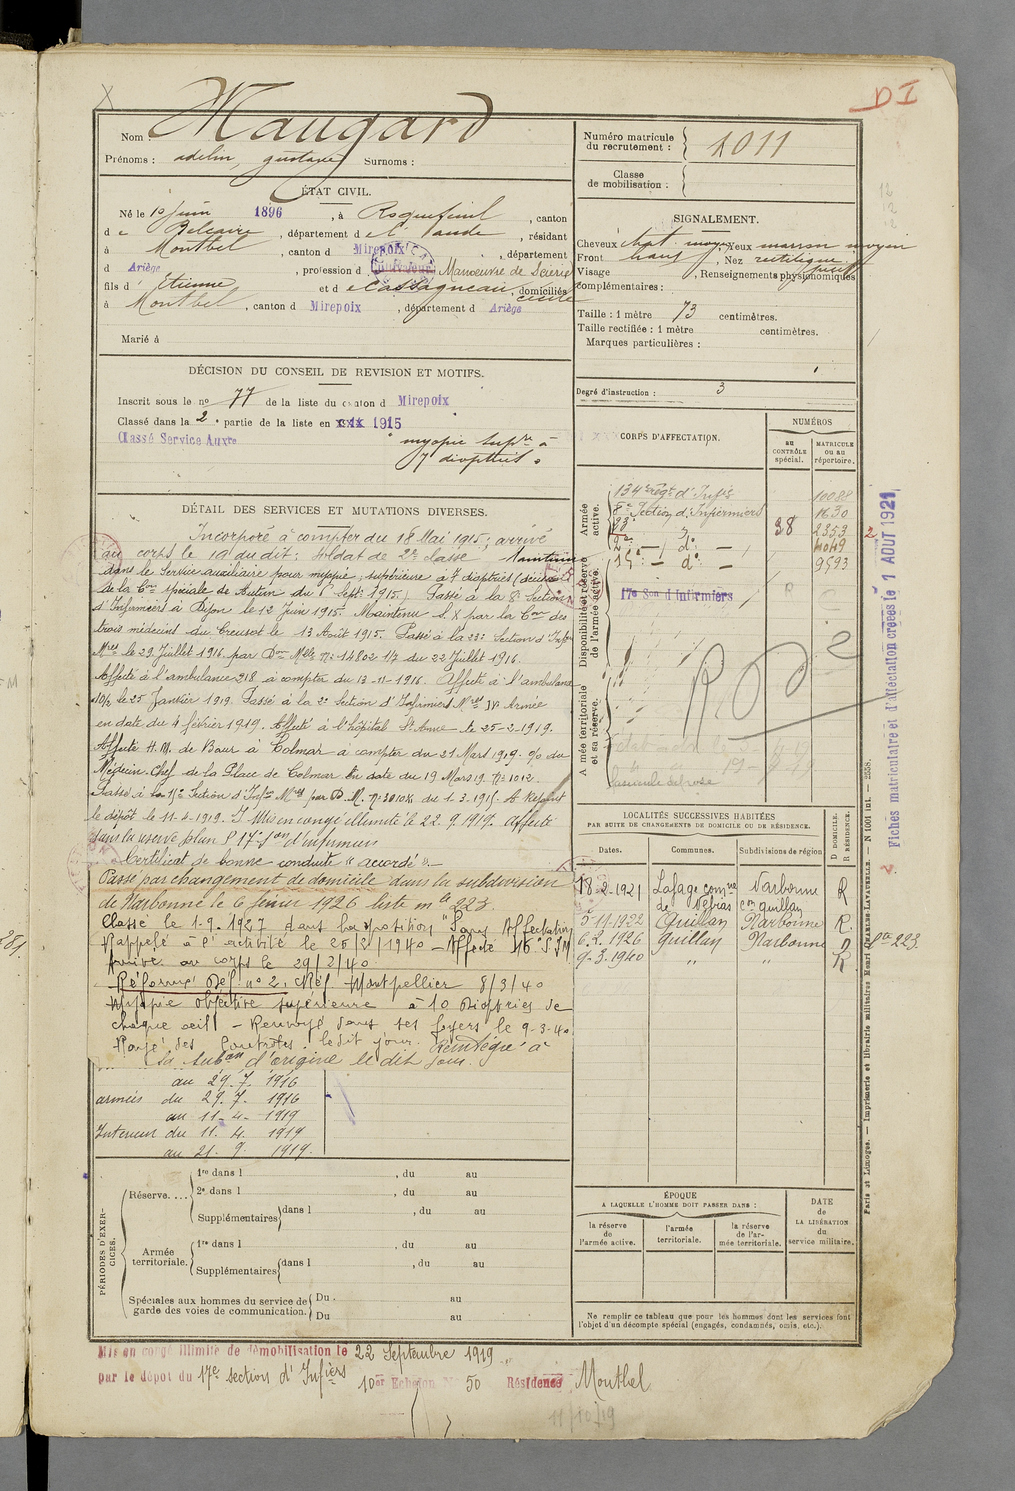 D I
Nom : Maugard
Prénoms : adelin, gustave Surnoms :
Numéro matricule du recrutement : 1011
Classe de mobilisation :
ÉTAT CIVIL.
Né le 10 juin 1896, à Roquefeuil, canton
de Belcaire, département de l'aude, résidant
à Montbel, canton d Mirepoix, département
d Ariège, profession d Cultivateur Manœuvre de Scierie
fils d' Etienne et de Cassagneau, cécile domiciliés
à Montbel, canton d Mirepoix, département d Ariège
Marié à
SIGNALEMENT.
Cheveux chat. moyen Yeux marron moyen
Front haut, Nez rectiligne
Visage, Renseignements physionomiques
complémentaires :
Taille : 1 mètre 73 centimètres.
Taille rectifiée : 1 mètre centimètres.
Marques particulières :
Degré d'instruction : 3
DÉCISION DU CONSEIL DE REVISION ET MOTIFS.
Inscrit sous le no 77 de la liste du canton d Mirepoix
Classé dans la 2e partie de la liste en 1915
Classé Service Auxre
"myopie supre à
7 dioptries"
CORPS D'AFFECTATION.
NUMÉROS
au CONTRÔLE spécial.
MATRICULE OU AU répertoire.
Armée active.
134e régt d'Infie 10088
8e Section d'Infirmiers 1630
23e - do - 38 2353
2e - do - 4049
15e - do - 9593
Disponibilité et réserve de l'armée active.
17e Son d'Infirmiers
Armée territoriale et sa réserve.
DÉTAIL DES SERVICES ET MUTATIONS DIVERSES.
Incorporé à compter du 18 Mai 1915, arrivé
au corps le 19 du dit : soldat de 2e classe. Maintenu
dans le Service auxiliaire pour myopie, supérieure à 7 dioptries (décision
de la Con spéciale de Autun du 1er Septe 1915.) Passé à la 8e Section
d'Infirmiers à Dijon le 12 Juin 1915. Maintenu S. X par la Con des
trois médecins du Creusot le 13 Août 1915. Passé à la 23e Section d'Infrs
Mres le 29 Juillet 1916 par Don Melle No 14802 1/7 du 22 Juillet 1916.
Affecté à l'ambulance 218 à compter du 13-11-1916. Affecté à l'ambulance
10/2 le 25 Janvier 1919. Passé à la 2e Section d'Infirmiers Mres IVe Armée
en date du 4 février 1919. Affecté à l'hôpital Ste Anne le 25-2-1919.
Affecté H. M. de Baur à Colmar à compter du 21 Mars 1919. o/o du
Médecin-Chef de la Place de Colmar en date du 19 Mars 19 No 1012.
Passé à la 15e Section d'Infrs Mres par D. M. No 3010 K du 1.3.1919. A rejoint
le dépôt le 11-4-1919. Mis en congé illimité le 22.9.1919. Affecté
dans la réserve plan P 17e Son d'infirmiers
Certificat de bonne conduite "accordé".
Passé par changement de domicile dans la subdivision
de Narbonne le 6 février 1926 liste mle 223.
Classé le 1.9.1927 dans la position "Sans Affectation"
Rappelé à l'activité le 25/2/1940 - Affecté 16e S I M
Arrivé au corps le 29/2/40
Réformé Déf. no 2, CRéf Montpellier 8/3/40
Myopie objective supérieure à 10 dioptries de
chaque œil - Renvoyé dans ses foyers le 9-3-40
Rayé des Contrôles ledit jour. Réintégré à
la Subon d'origine le dit jour.
au 29.7.1916
armées du 29.7.1916
au 11-4-1919
Intérieur du 11.4.1919
au 21.9.1919.
LOCALITÉS SUCCESSIVES HABITÉES
PAR SUITE DE CHANGEMENTS DE DOMICILE OU DE RÉSIDENCE.
Dates. Communes. Subdivisions de région D DOMICILE. R RÉSIDENCE.
18-2-1921 Lafage comne de Nébias Narbonne con Quillan R
5-11-1922 Quillan Narbonne R.
6-2-1926 Quillan Narbonne D lon 223.
9-3-1940 " " R
PÉRIODES D'EXERCICES.
Réserve.... 1re dans l , du au
2e dans l , du au
Supplémentaires dans l , du au
Armée territoriale. 1re dans l , du au
Supplémentaires dans l , du au
Spéciales aux hommes du service de garde des voies de communication. Du au
Du au
ÉPOQUE
A LAQUELLE L'HOMME DOIT PASSER DANS :
la réserve de l'armée active.
l'armée territoriale.
la réserve de l'armée territoriale.
DATE de LA LIBÉRATION du service militaire.
Ne remplir ce tableau que pour les hommes dont les services font
l'objet d'un décompte spécial (engagés, condamnés, omis, etc.).
Mis en congé illimité de démobilisation le 22 Septembre 1919
par le dépôt du 17e section d'Infiers 10er Echelon No 50 Résidence Montbel
11/10/19
Fiches matriculaire et d'affectation créées le 1 AOUT 1921
Paris et Limoges. — Imprimerie et librairie militaires Henri CHARLES-LAVAUZELLE. — N 1001 int. — 2558.